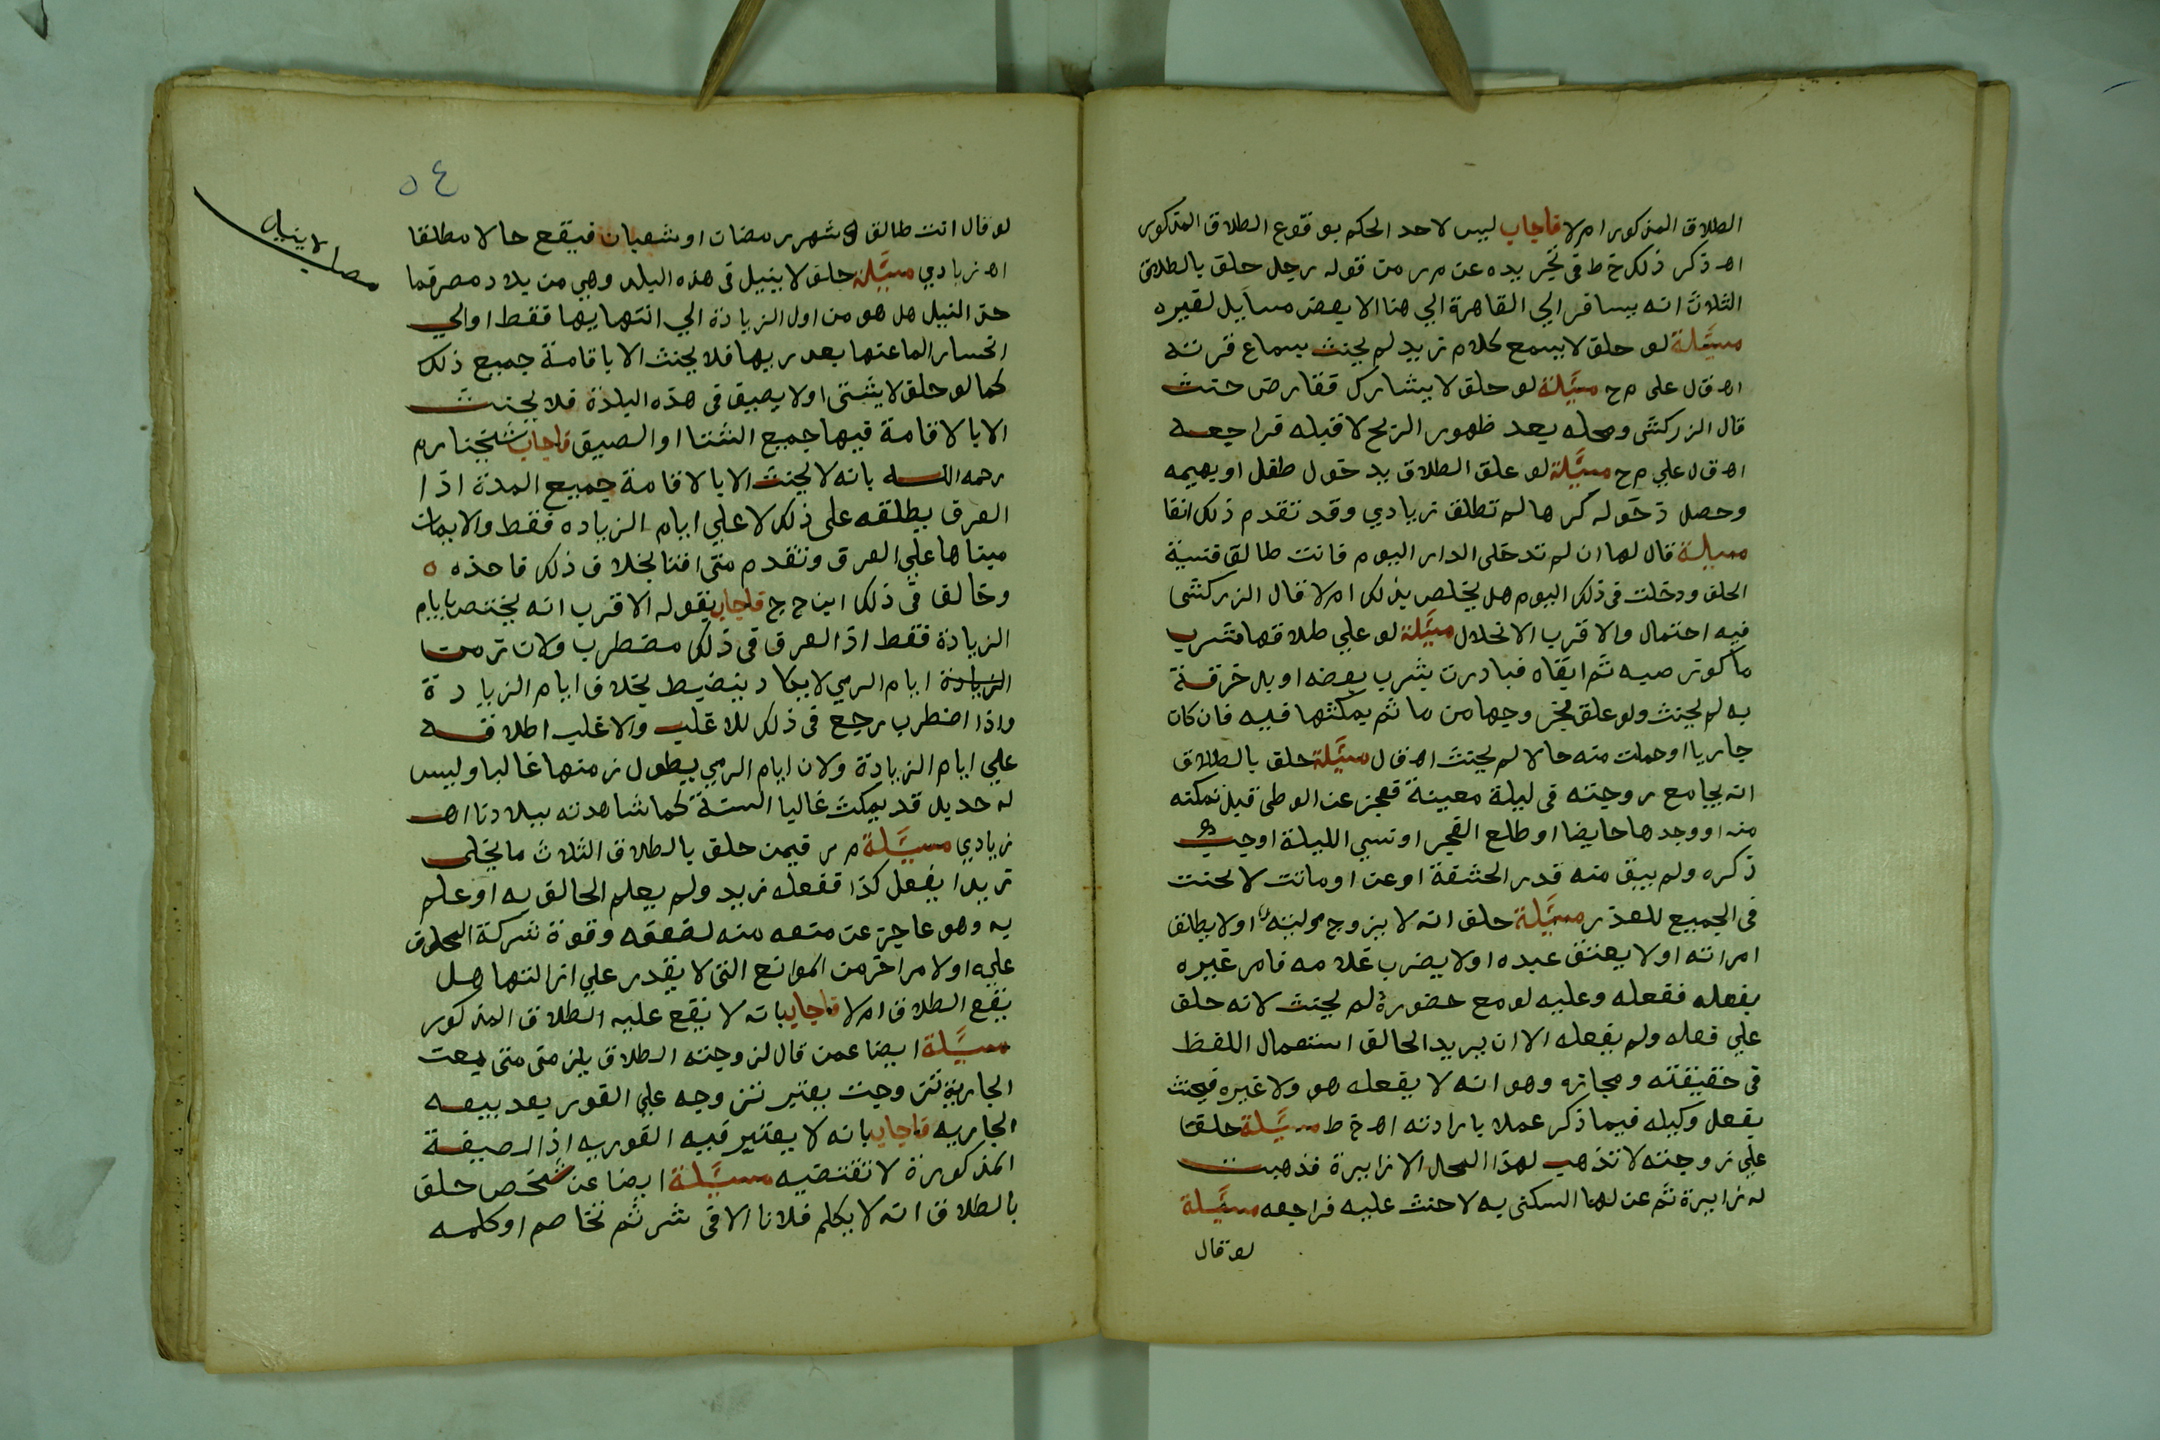 الطلاق المذكور ام لا فاجاب ليس لاحد الحكم بوقوع الطلاق المذكور
اه ذكر ذلك خ ط في تجريده عن م ر من قوله رجل حلق بالطلاق
الثلاث انه يسافر الي القاهرة الي هنا الا بعض مسايل لغيره
مسيلة لو حلف لا يسمع كلام زيد لم يحنث بسماع قرته
اه ق ل على م ح مسيلة لو حلف لا يشارك فقارض حنث
قال الزركشي ومحله بعد ظهور الربح لا قبله فراجعه
اه ق ل علي م ح مسيلة لو علق الطلاق بدخول طفل او بهيمه
وحصل دخوله كرها لم تطلق زيادي وقد تقدم ذلك انفا
مسيلة قال لها ان لم تدخلى الدار اليوم فانت طالق فنسية
الحلف ودخلت في ذلك اليوم هل يخلص بذلك ام لا قال الزركشي
فيه احتمال والاقرب الانحلال مسيلة لو علي طلاقها بشرب
ما كوز صبه ثم ابقاه فبادرت بشرب بعضه او بل خرقة
به لم يحنث ولو علق بخروجها من ما ثم يمكثها فيه فان كان
جاريا او حملت منه حالا لم يحنث اه ق ل مسيلة حلف بالطلاق
انه يجامع زوجته في ليلة معينة فعجز عن الوطي قبل تمكنه
منه او وجدها حايضا او طلع الفجر او نسي الليلة او جب
ذكره ولم يبق منه قدر الحشفة او عن او ماتت لا يحنث
في الجميع للعذر مسيلة حلف انه لا يزوج موليته او لا يطلق
امراته او لا يعتق عبده او لا يضرب غلامه فامر غيره
بفعله ففعله وعليه لو مع حضوره لم يحنث لانه حلف
علي فعله ولم يفعله الا ان يريد الحالف استعمال اللفظ
في حقيقته ومجازه وهو انه لا يفعله هو ولا غيره فيحنث
بفعل وكيله فيما ذكر عملا بارادته اه خ ط مسيلة حلف
علي زوجته لا تذهب لهذا المحل الا زايرة فذهبت
له زايرة ثم عن لها السكنى به لا حنث عليه فراجعه مسيلة
لو قال
٥٤
لو قال انت طالق شهر رمضان او شعبان فيقع حالا مطلقا
اه زيادي مسيلة حلف لا ينيل في هذه البلد وهي من بلاد مصر فما
حق النيل هل هو من اول الزيادة الي انتهايها فقط او الي
انحسار الما عنها بعد ريها فلا يحنث الا باقامة جميع ذلك
كما لو حلف لا يشتى او لا يصيف في هذه البلدة فلا يحنث
الا بالاقامة فيها جميع الشتا او الصيف فاجاب شيخنا م ر
رحمه الله بانه لا يحنث الا بالاقامة جميع المدة اذا
العرف يطلقه على ذلك لا علي ايام الزياده فقط والايمان
مبناها علي العرف وتقدم متى افتا بخلاف ذلك فاحذه ه
وخالف في ذلك ابن ح ج فاجاب بقوله الاقرب انه يختص بايام
الزيادة فقط اذ العرف في ذلك مضطرب ولان زمن
الزيادة ايام الري لا يكاد ينضبط بخلاف ايام الزيادة
واذا اضطرب رجع في ذلك للاغلب والاغلب اطلاقه
علي ايام الزيادة ولان ايام الري يطول زمنها غالبا وليس
له حد بل قد يمكث غالبا السنة كما شاهدته ببلادنا اهـ
زيادي مسيلة م ر فيمن حلف بالطلاق الثلاث ما يخلى
زيدا يفعل كذا ففعله زيد ولم يعلم الحالف به او علم
به وهو عاجز عن منعه منه لضعفه وقوة شركة المحلوف
عليه او لامر اخر من الموانع التي لا يقدر علي ازالتها هل
يقع الطلاق ام لا فاجاب بانه لا يقع عليه الطلاق المذكور
مسيلة ايضا عمن قال لزوجته الطلاق يلزمني متى بعت
الجارية تتزوجت يعتبر تزوجه علي الفور بعد بيعه
الجاريه فاجاب بانه لا يعتبر فيه الفوريه اذ الصيغة
المذكورة لا تقتضيه مسيلة ايضا عن شخص حلف
بالطلاق انه لا يكلم فلانا الا في شر ثم تخاصم او كلمه
لا ينيل